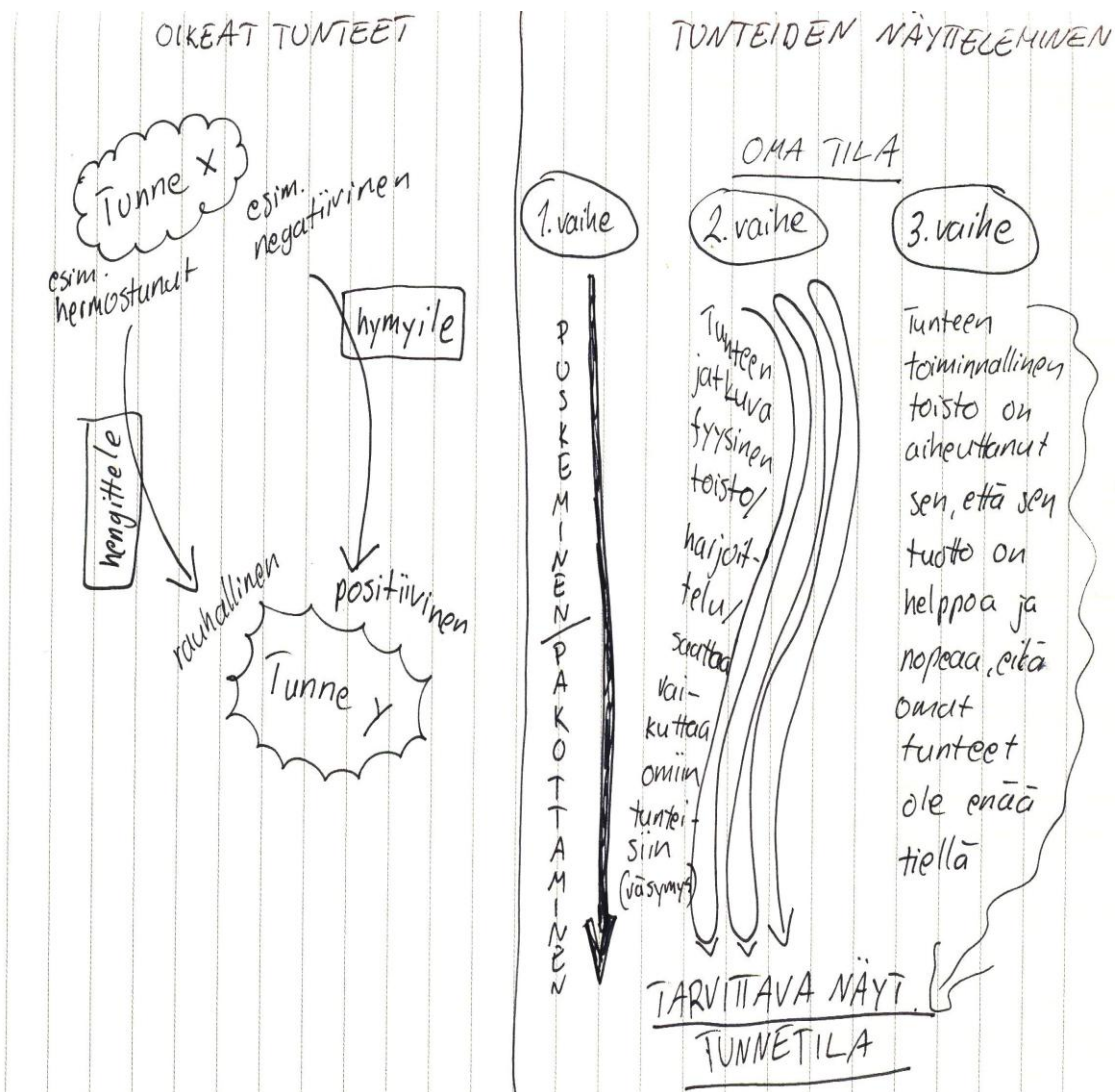 OIKEAT TUNTEET
Tunne X
esim.
hermostunut
esim.
negatiivinen
hengittele
hymyile
rauhallinen
positiivinen
Tunne y
TUNTEIDEN NÄYTTELEMINEN
OMA TILA
1. vaihe
PUSKEMINEN/PAKOTTAMINEN
2. vaihe
Tunteen
jatkuva
fyysinen
toisto/
harjoit-
telu/
saattaa
vai-
kuttaa
omiin
tuntei-
siin
(väsymys)
3. vaihe
Tunteen
toiminnallinen
toisto on
aiheuttanut
sen, että sen
tuotto on
helppoa ja
nopeaa, eikä
omat
tunteet
ole enää
tiellä
TARVITTAVA NÄYT.
TUNNETILA